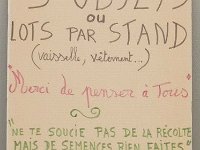 3 OBJETS
ou
LOTS PAR STAND
(vaisselle, vêtement...)
"Merci de penser à Tous"
"NE TE SOUCIE PAS DE LA RÉCOLTE
MAIS DE SEMENCES BIEN FAITES"